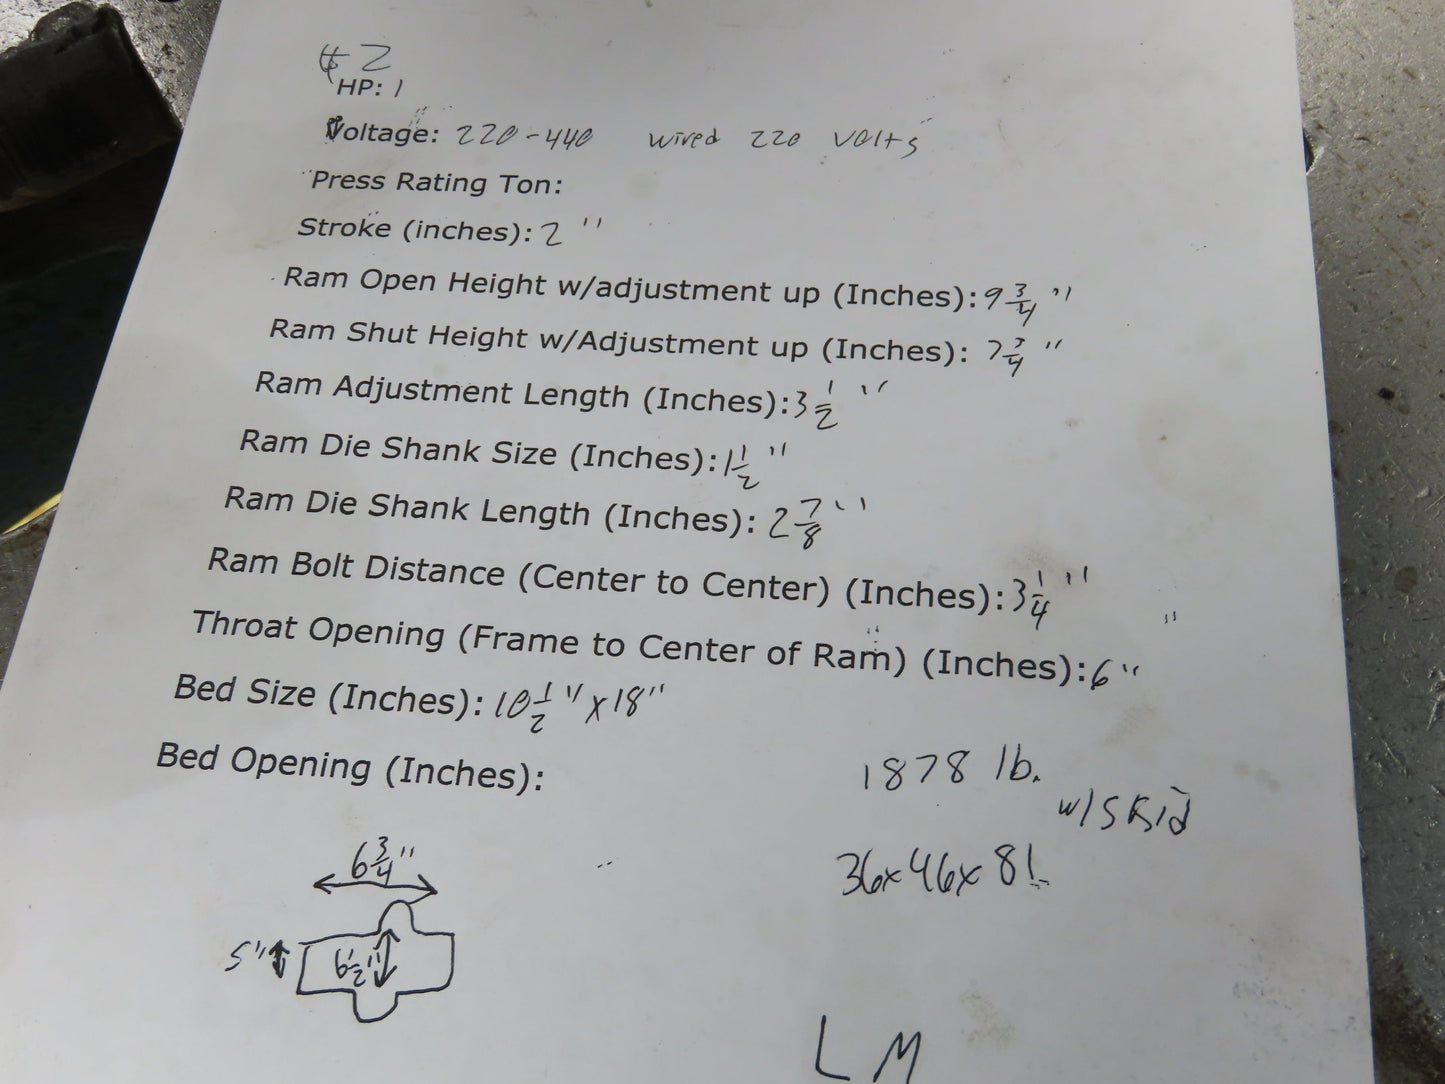 # 2
HP: 1
Voltage: 220-440 wired 220 volts
Press Rating Ton:
Stroke (inches): 2"
Ram Open Height w/adjustment up (Inches): 9 3/4"
Ram Shut Height w/Adjustment up (Inches): 7 3/4"
Ram Adjustment Length (Inches): 3 1/2"
Ram Die Shank Size (Inches): 1 1/2"
Ram Die Shank Length (Inches): 2 7/8"
Ram Bolt Distance (Center to Center) (Inches): 3 1/4"
Throat Opening (Frame to Center of Ram) (Inches): 6"
Bed Size (Inches): 10 1/2" x 18"
Bed Opening (Inches):
1878 lb.
w/skid
36x46x81
6 3/4"
5" 6 1/2"
LM